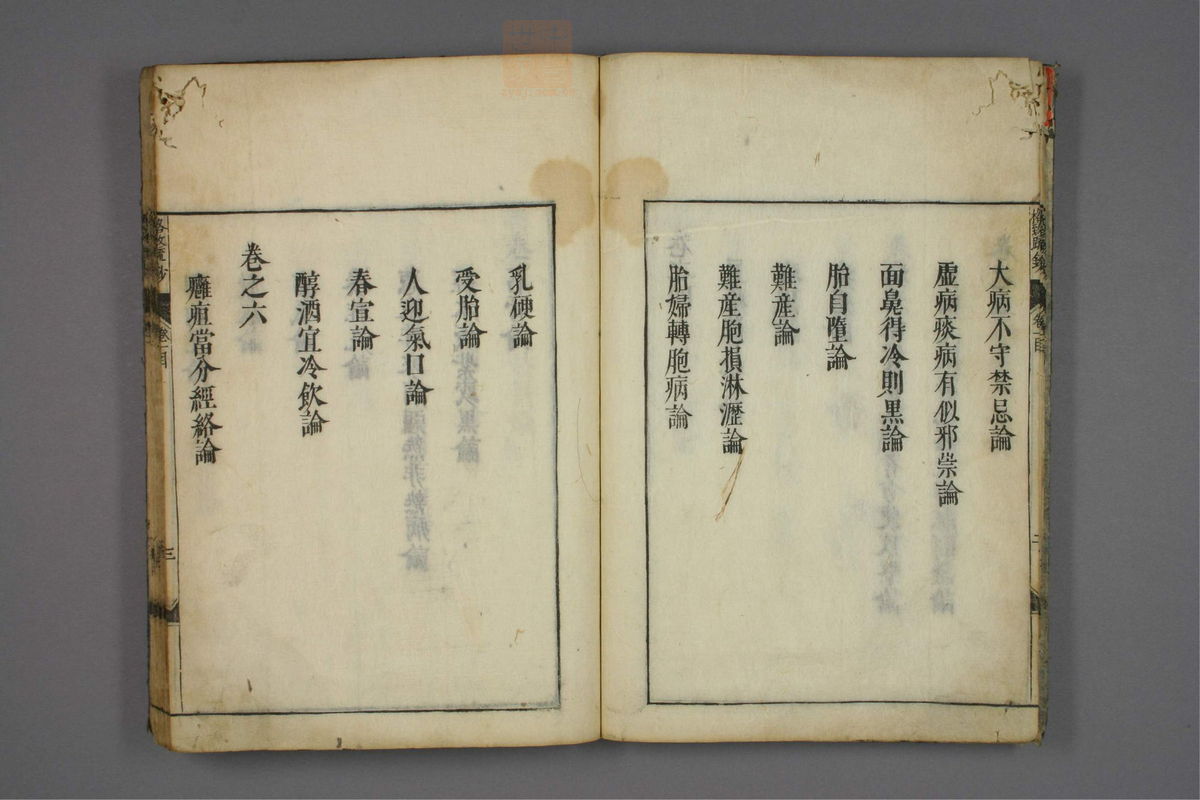 大病不守禁忌論
虛病痰病有似邪祟論
面鼻得冷則黑論
胎自墮論
難産論
難産胞損淋瀝論
胎婦轉胞病論
乳硬論
受胎論
人迎氣口論
春宣論
醇酒宜冷飲論
卷之六
癰疽當分經絡論
三